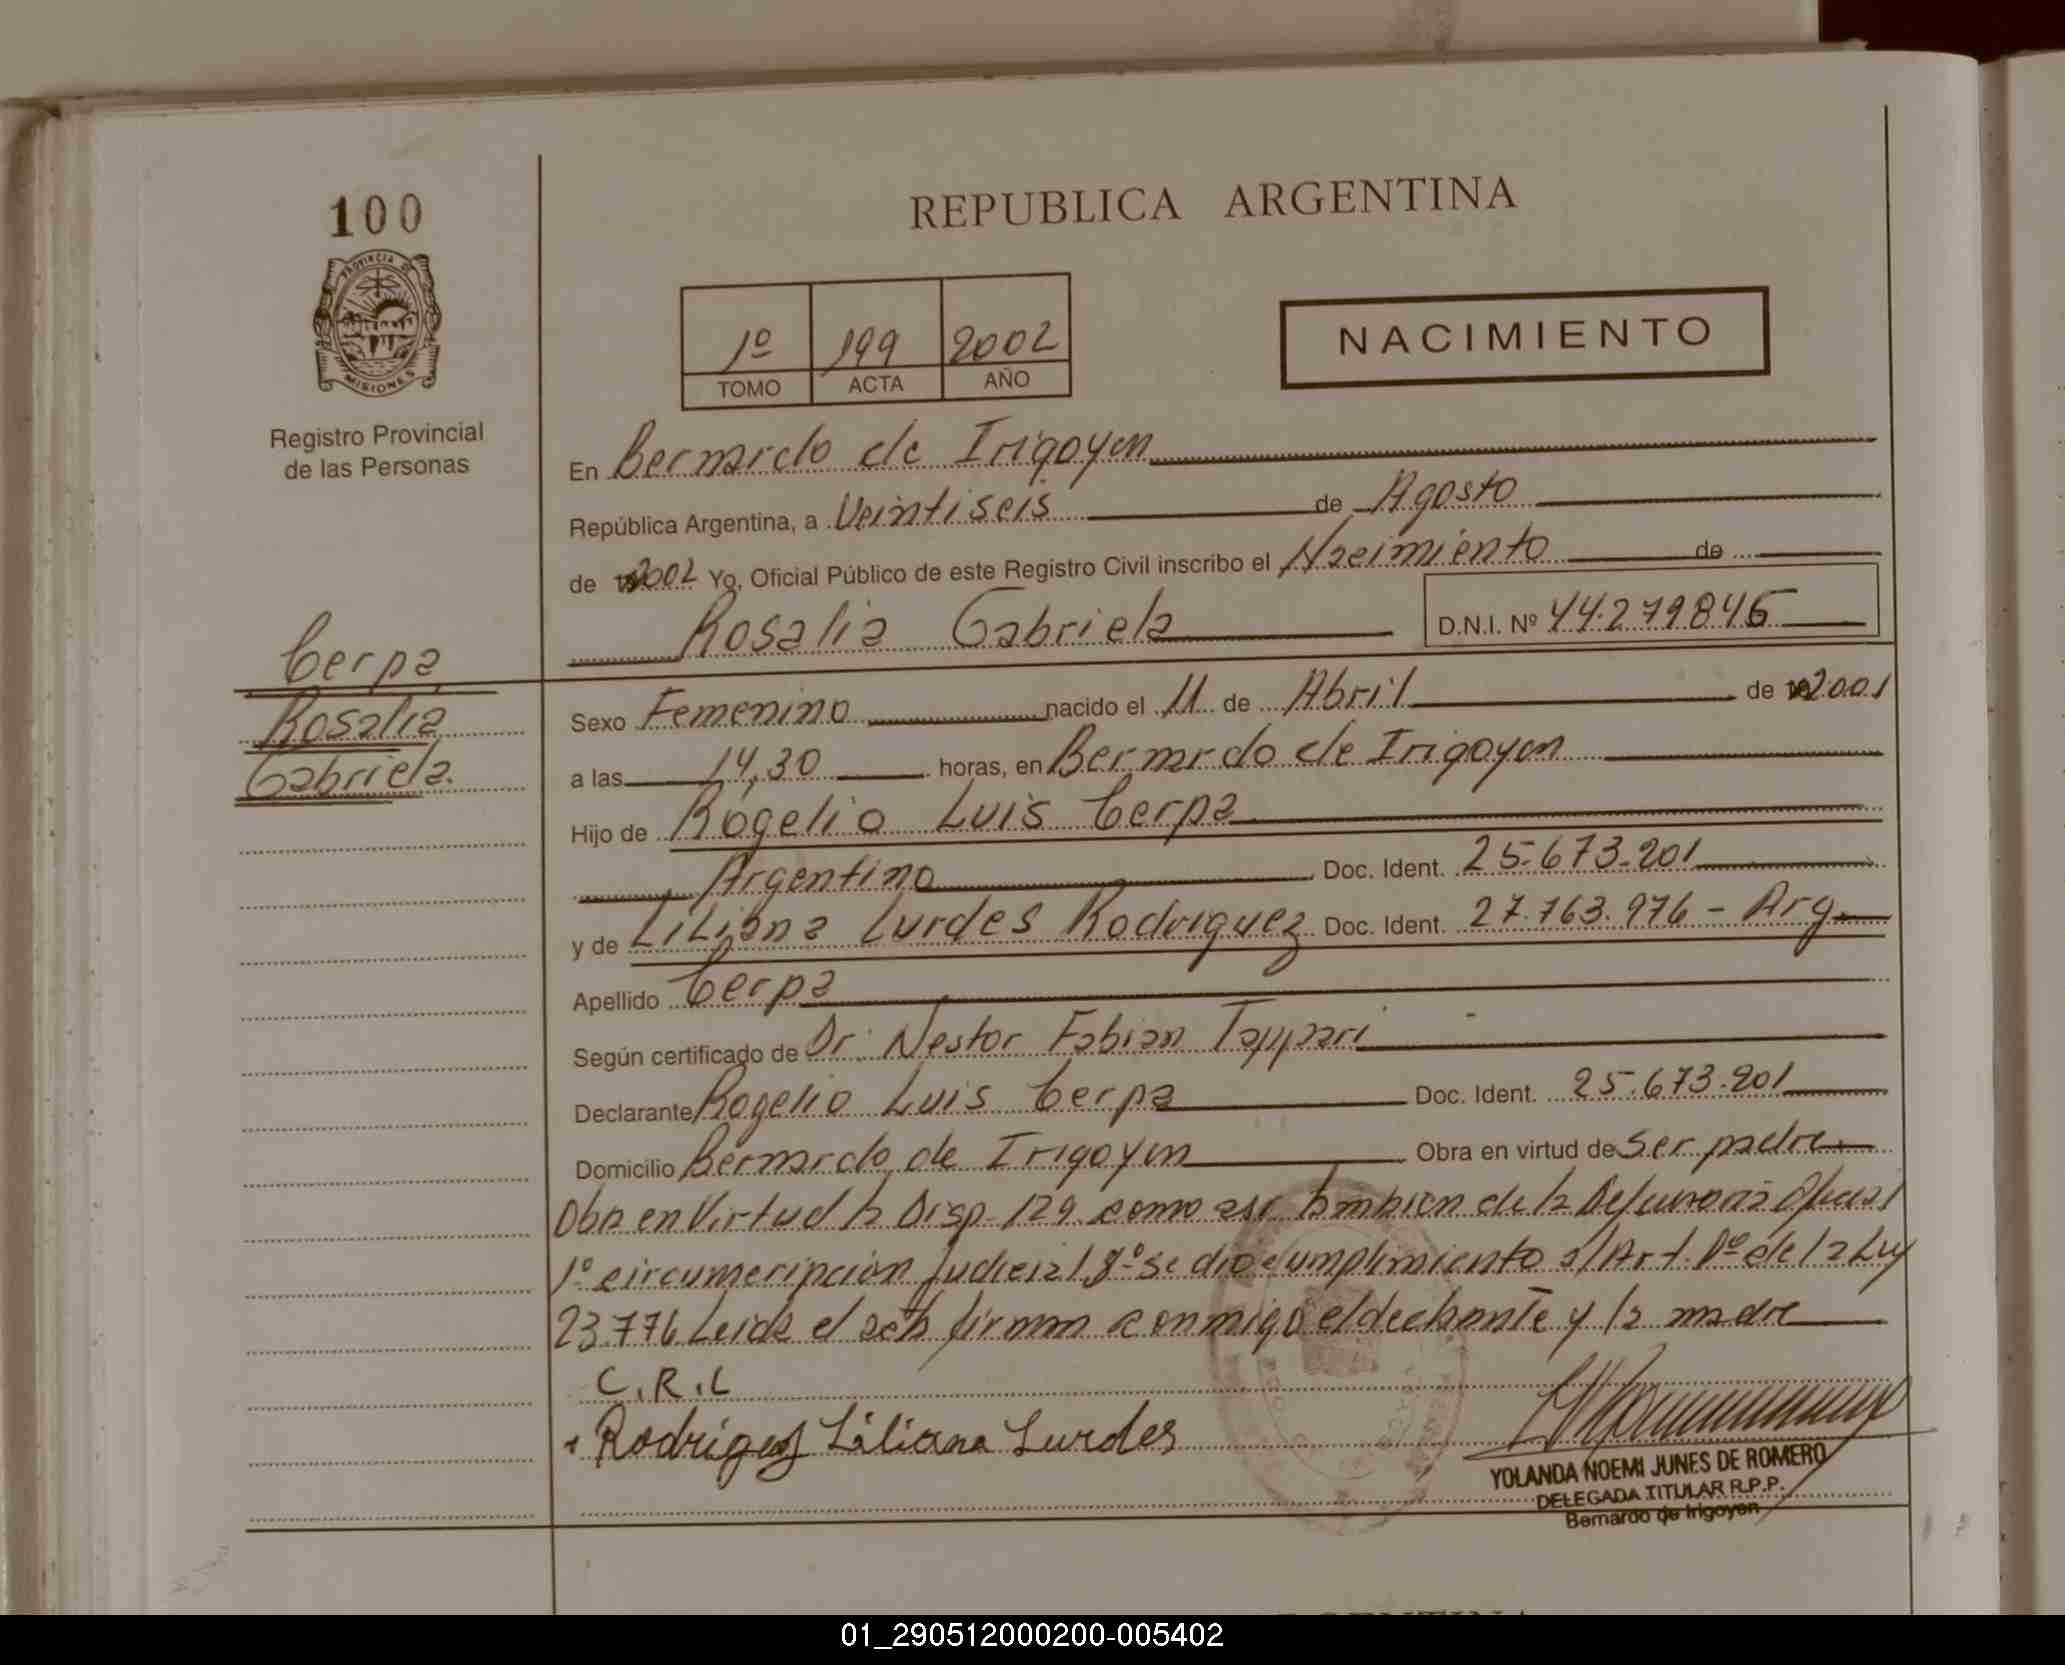 100
REPUBLICA ARGENTINA
PROVINCIA DE
MISIONES
Registro Provincial
de las Personas
1º 199 2002
TOMO ACTA AÑO
NACIMIENTO
En Bernardo de Irigoyen
República Argentina, a Veintiseis de Agosto
de 2002 Yo, Oficial Público de este Registro Civil inscribo el Nacimiento de
Rosalia Gabriela D.N.I. Nº 44.279.846
Cerpa
Rosalia
Gabriela.
Sexo Femenino nacido el 11 de Abril de 2001
a las 14,30 horas, en Bernardo de Irigoyen
Hijo de Rogelio Luis Cerpa
Argentino Doc. Ident. 25.673.201
y de Liliana Lurdes Rodriguez Doc. Ident. 27.763.976 - Arg.
Apellido Cerpa
Según certificado de Dr. Nestor Fabian
Declarante Rogelio Luis Cerpa Doc. Ident. 25.673.201
Domicilio Bernardo de Irigoyen Obra en virtud de ser padre.
Obra en Virtud la Disp. 129 como asi tambien de la Defensoria Oficial
1º circumcripción Judicial. se dio cumplimiento al Art. de la Ley
23.776 Leida el acta firman conmigo el declarante y la madre
C.R.L
Rodriguez Liliana Lurdes
YOLANDA NOEMI JUNES DE ROMERO
DELEGADA TITULAR R.P.P.
Bernardo de Irigoyen
01_290512000200-005402